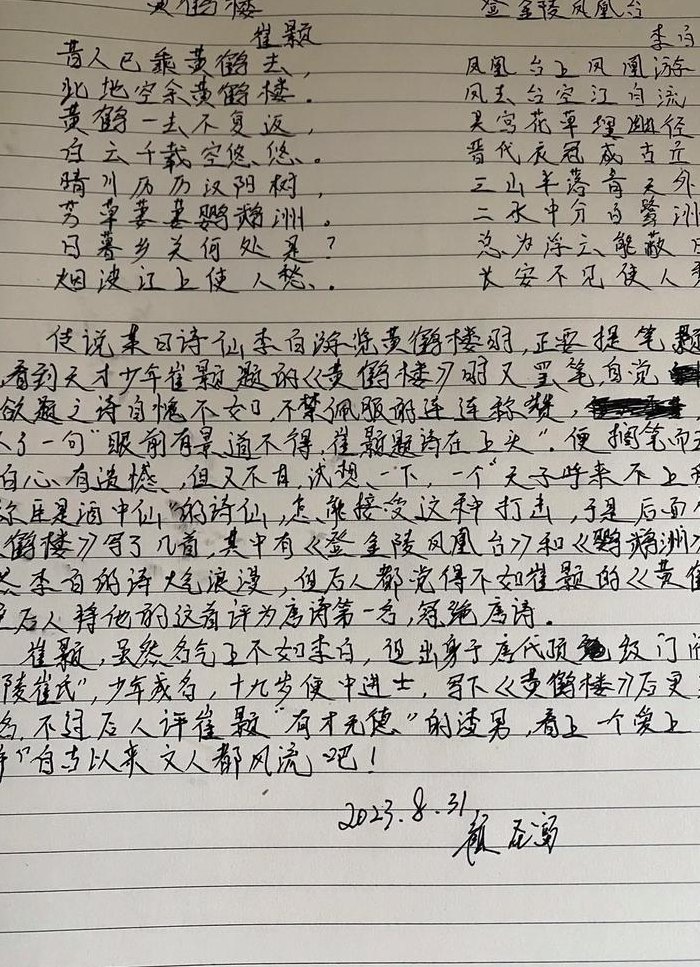 黄鹤楼 登金陵凤凰台
崔颢 李白
昔人已乘黄鹤去, 凤凰台上凤凰游
此地空余黄鹤楼。 凤去台空江自流
黄鹤一去不复返, 吴宫花草埋幽径
白云千载空悠悠。 晋代衣冠成古丘
晴川历历汉阳树, 三山半落青天外
芳草萋萋鹦鹉洲。 二水中分白鹭洲
日暮乡关何处是? 总为浮云能蔽日
烟波江上使人愁。 长安不见使人
传说某日诗仙李白游览黄鹤楼时,正要提笔题
看到天才少年崔颢题的《黄鹤楼》时又罢笔,自觉
欲题之诗自愧不如,不禁佩服的连连称赞,
了一句“眼前有景道不得,崔颢题诗在上头”.便搁笔而
白心有遗憾,但又不甘,试想一下,一个“天子呼来不上
称臣是酒中仙”的诗仙,怎能接受这种打击,于是后面
鹤楼》写了几首,其中有《登金陵凤凰台》和《鹦鹉洲》
李白的诗大气浪漫,但后人都觉得不如崔颢的《黄鹤
后人将他的这首评为唐诗第一名,冠绝唐诗。
崔颢,虽然名气上不如李白,但出身于唐代顶级门
陵崔氏”,少年成名,十九岁便中进士,写下《黄鹤楼》后更
名,不过后人评崔颢“有才无德”的渣男,看上一个爱上
“自古以来文人都风流”吧!
2023.8.31